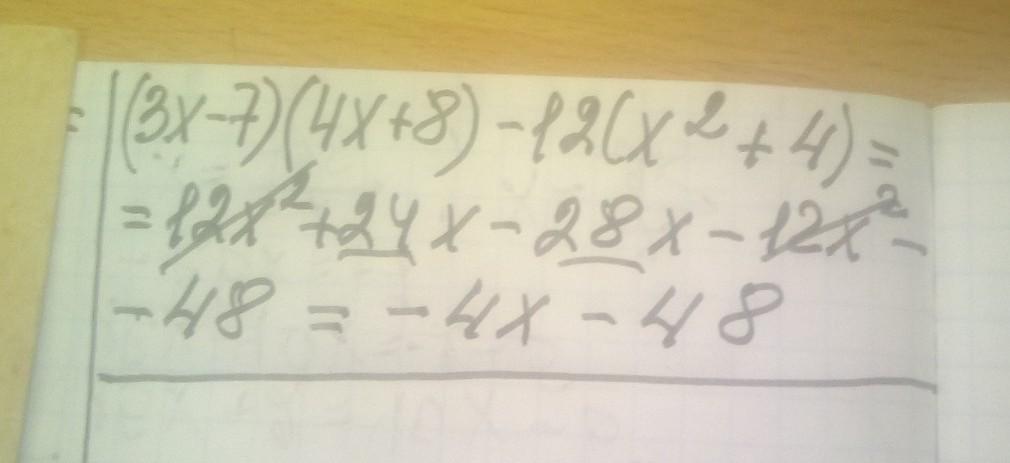 = (3x-7)(4x+8)-12(x²+4)=
=12x²+24x-28x-12x²-
-48 = -4x-48